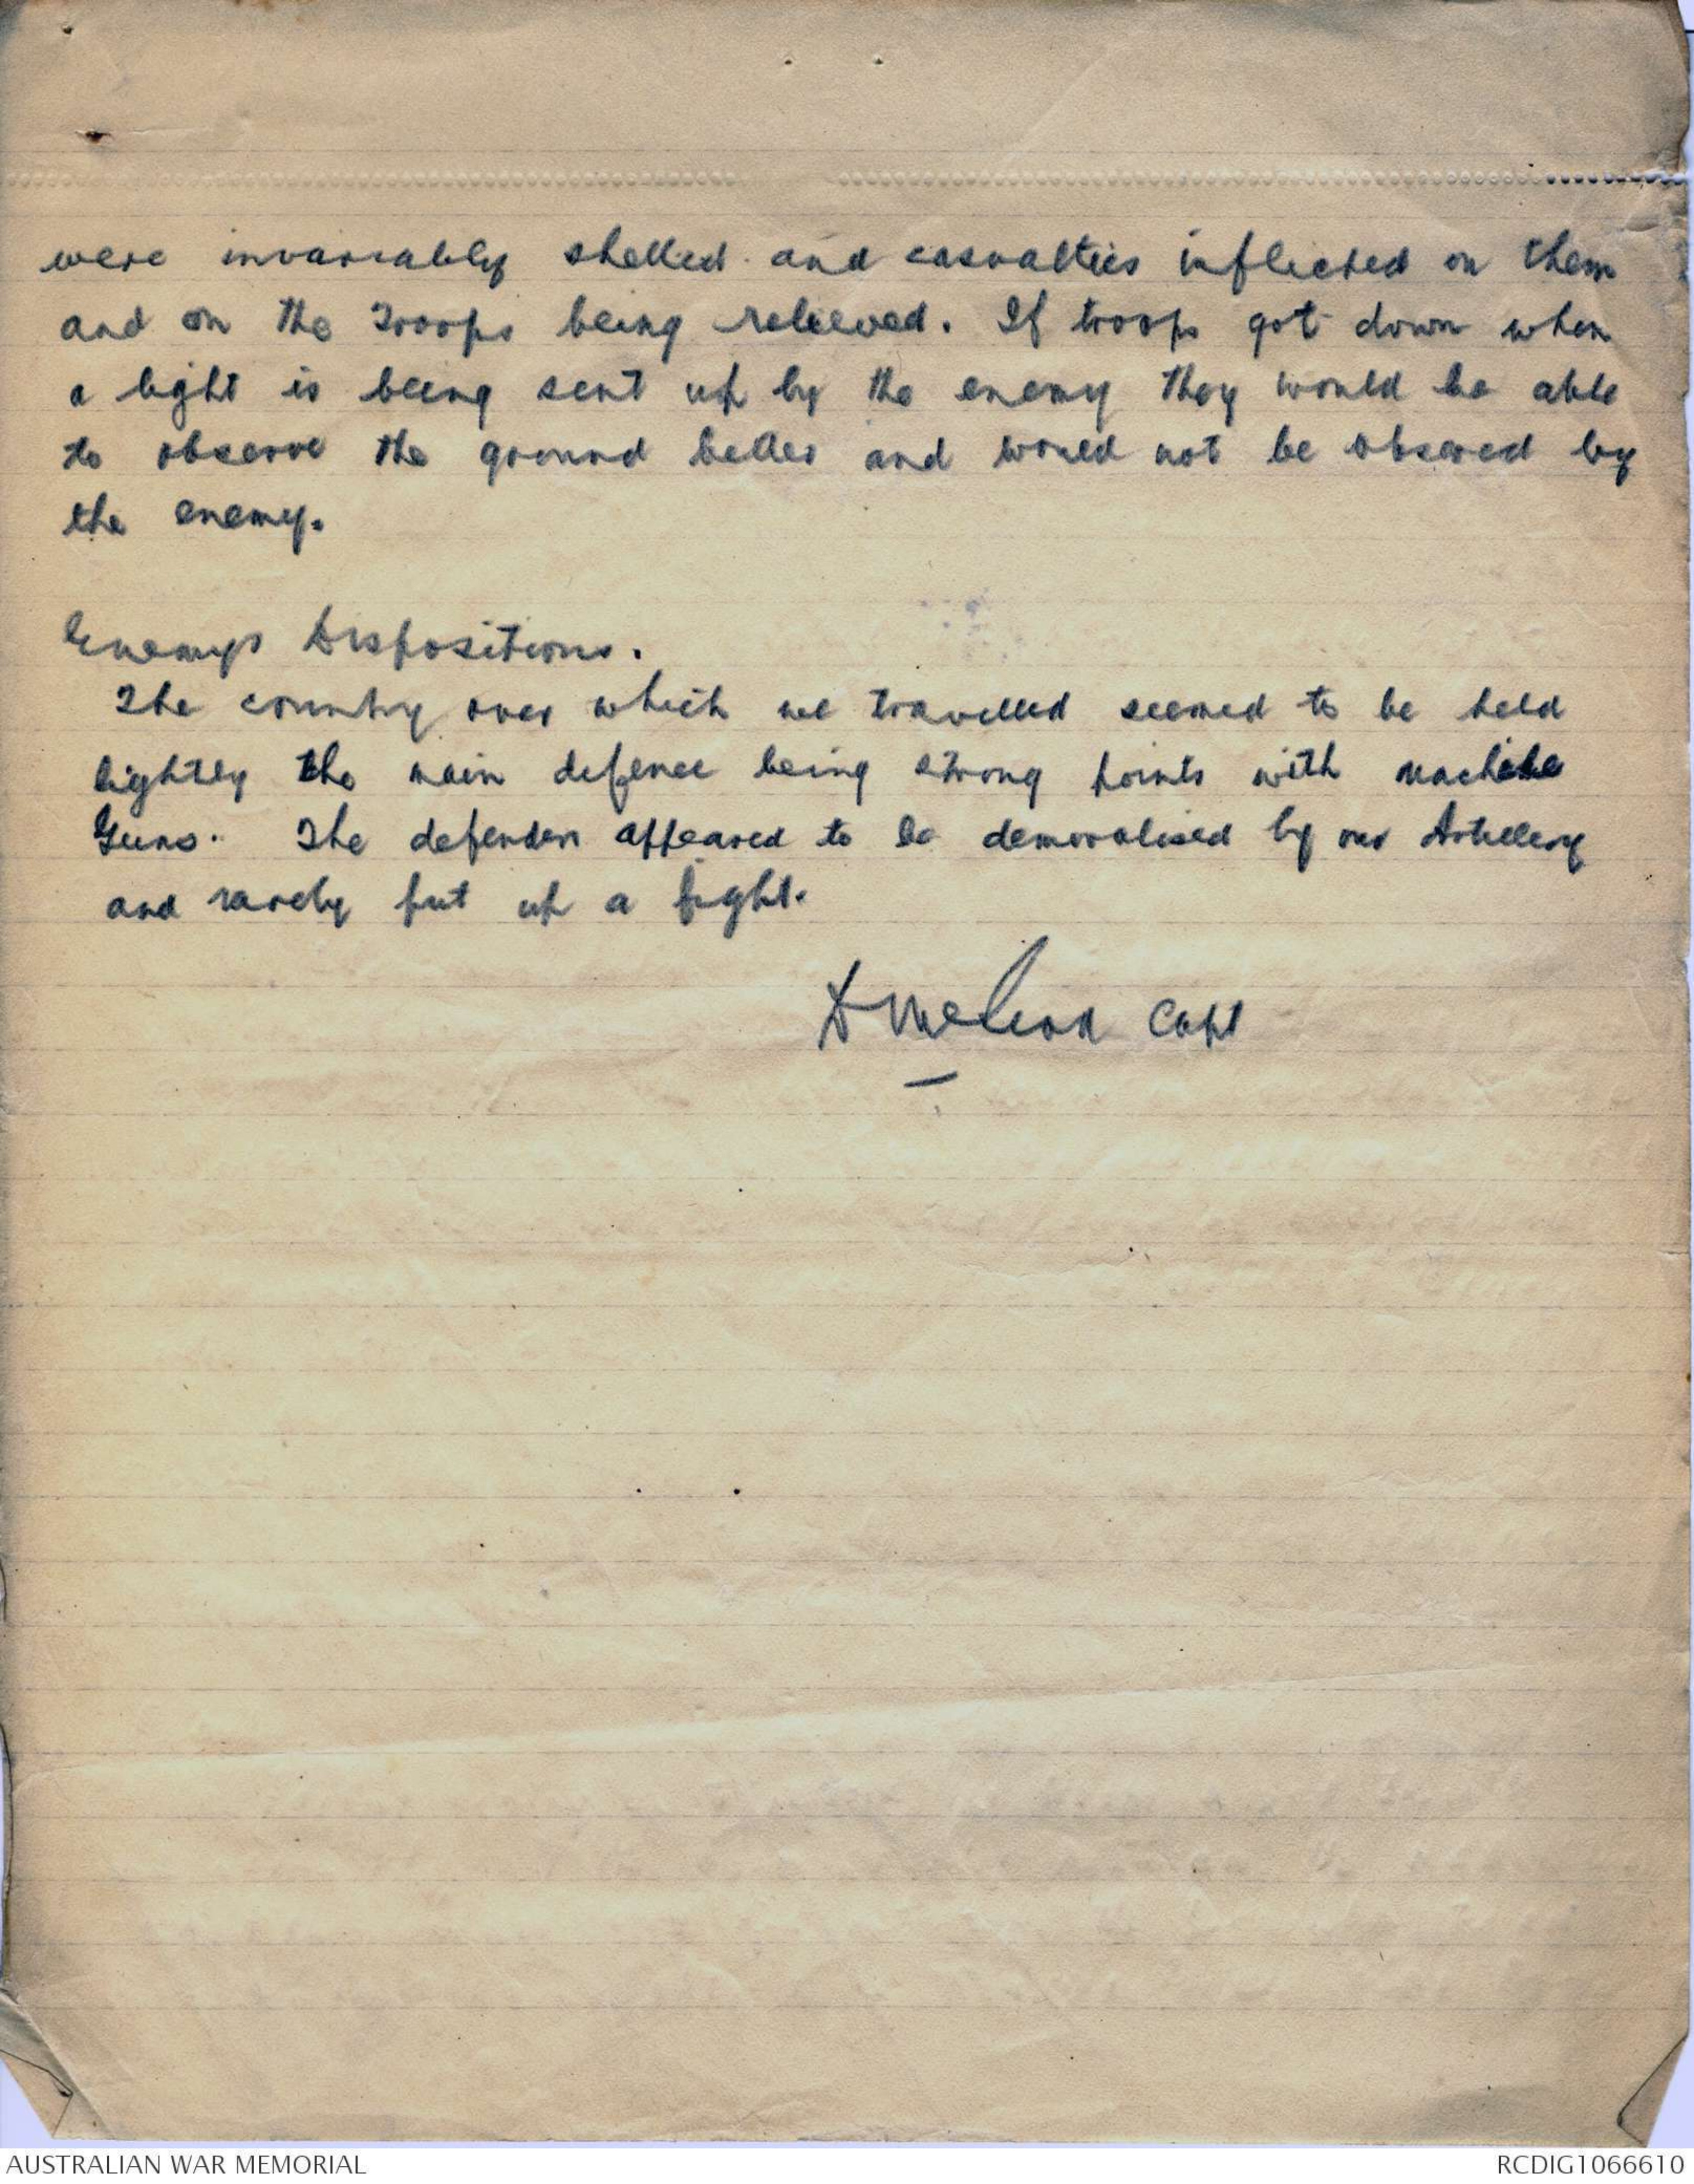 were invariably shelled and casualties inflicted on them
and on the Troops being relieved. If troops got down when
a light is being sent up by the enemy they would be able
to observe the ground better and would not be observed by
the enemy.
Enemys Dispositions.
The country over which we travelled seemed to be held
lightly the main defence being strong points with machine
Guns. The defenders appeared to be demoralised by our Artillery
and rarely put up a fight.
D McLeod Capt
AUSTRALIAN WAR MEMORIAL
RCDIG1066610